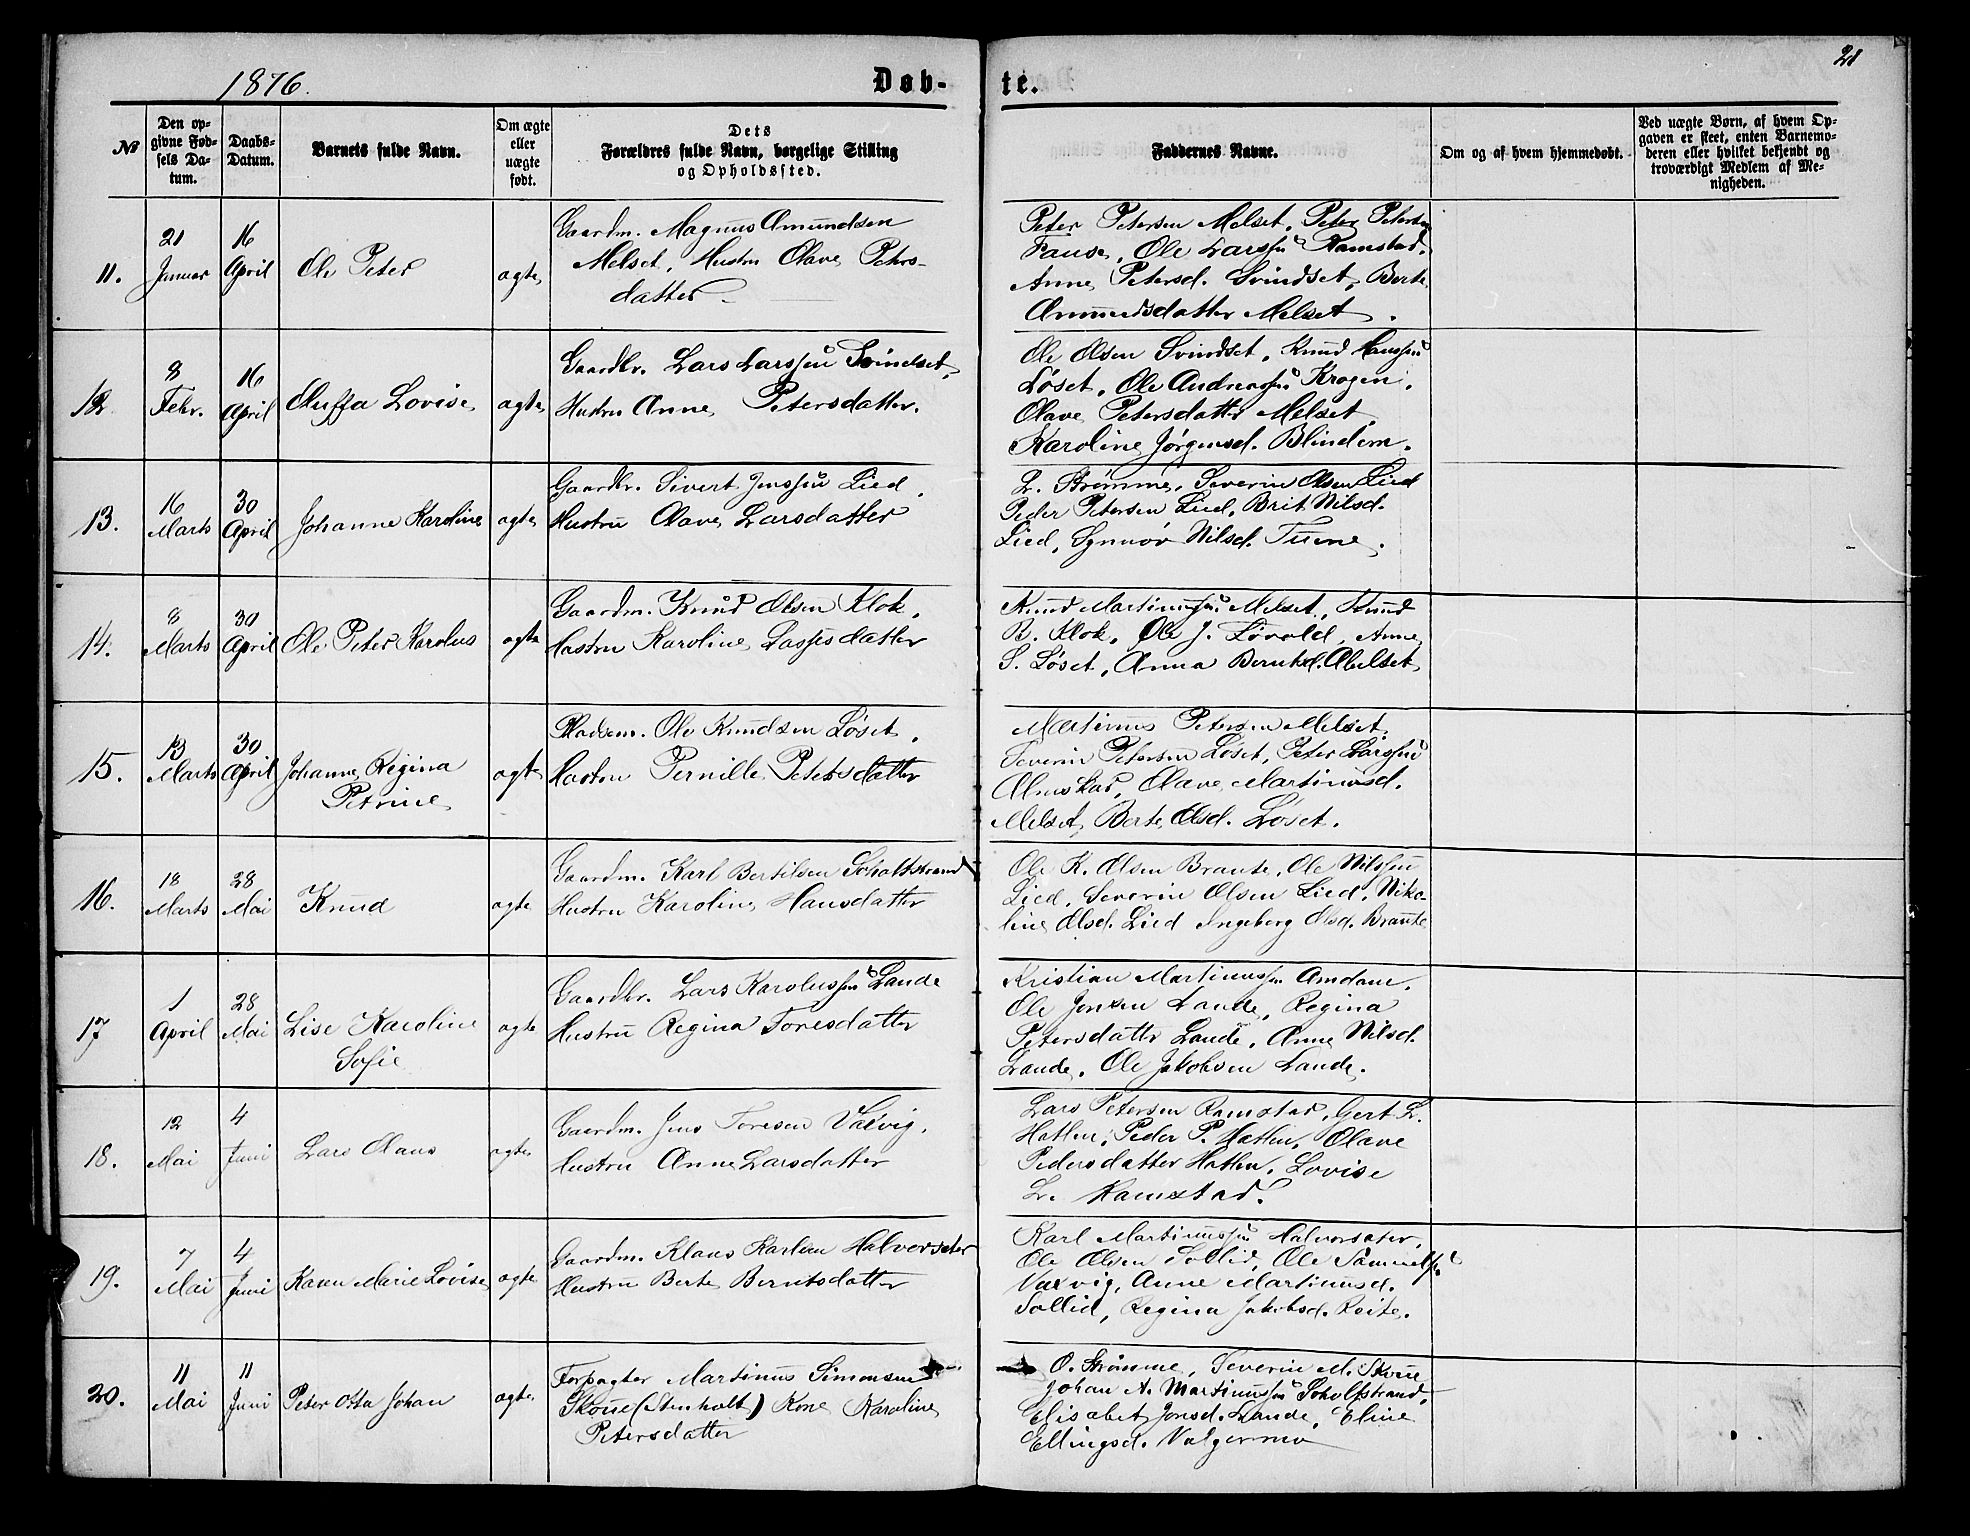 1876.
Døb-
te.
21
№
Den op-
givne Fød-
sels Da-
tum.
Daabs-
Datum.
Barnets fulde Navn.
Om ægte
eller
uægte
født.
Dets
Forældres fulde Navn, borgelige Stilling
og Opholdssted.
Faddernes Navne.
Om og af hvem hjemmedøbt.
Ved uægte Børn, af hvem Op-
gaven er skeet, enten Barnemo-
deren eller hvilket bekjendt og
troværdigt Medlem af Me-
nigheden.
11.
21
Januar
16
April
Ole Peter
ægte
Gaardm. Magnus Amundsen
Melset, Hustru Olave Peters-
datter
Peter Petersen Melset, Peter Petersen
Fause, Ole Larssen Ramstad,
Anne Petersd. Svindset, Berte
Amundsdatter Melset.
12.
8
Febr.
16
April
Oluffa Lovise
ægte
Gaardbr. Lars Larssen Svindset,
Hustru Anne Petersdatter.
Ole Olsen Svindset, Knud Hanssen
Løset, Ole Andreassen Krogen,
Olave Petersdatter Melset,
Karoline Jørgensd. Blindem.
13.
16
Marts
30
April
Johanne Karoline
ægte
Gaardbr. Sivert Jenssen Lied,
Hustru Olave Larsdatter
L. Strømme, Severin Olsen Lied
Peder Petersen Lied, Brit Nilsd.
Lied, Synnøv Nilsd. Tuene.
14.
8
Marts
30
April
Ole Peter Karolus
ægte
Gaardm. Knud Olsen Klok,
Hustru Karoline Lassesdatter
Knud Martinussen Melset, Knud
B. Klok, Ole J. Løvold, Anne
S. Løset, Anna Berntsd. Abelset
15.
13
Marts
30
April
Johanne Regina
Petrine
ægte
Pladsm. Ole Knudsen Løset,
Hustru Pernille Petersdatter
Martinus Petersen Melset,
Severin Petersen Løset, Peter Larssen
Almskar, Olave Martinusd.
Melset, Berte Olsd. Løset.
16.
18
Marts
28
Mai
Knud
ægte
Gaardm. Karl Bertilsen Scholfstrand
Hustru Karoline Hansdatter
Ole K. Olsen Braute, Ole Nilssen
Lied, Severin Olsen Lied, Niko-
line Olsd. Lied Ingeborg Olsd. Braute
17
1
April
28
Mai
Lise Karoline
Sofie
ægte
Gaardbr. Lars Karolussen Lande
Hustru Regina Toresdatter
Kristian Martinussen Amdam.
Ole Jensen Lande, Regina
Petersdatter Lande, Anne Nilsd.
Lande, Ole Jakobsen Lande.
18.
12
Mai
4
Juni
Lars Olaus
ægte
Gaardm. Jens Toresen Varvig,
Hustru Anne Larsdatter
Lars Petersen Ramstad, Gert L.
Hatlen, Peder P. Hatlen, Olave
Pedersdatter Hatlen, Lovise
L. Ramstad.
19.
7
Mai
4
Juni
Karen Marie Lovise
ægte
Gaardm. Klaus Karlsen Halvorsæter
Hustru Berte Berntsdatter
Karl Martinussen Halvorsæter,
Ole Olsen Sollid, Ole Samuelssen
Varvig, Anne Martinusd.
Sollid, Regina Jakobsd. Reite.
20.
11
Mai
11
Juni
Peter Otto Johan
ægte
Forpagter Martinus Simonsen
Skoue (Stenholt) Kone Karoline
Petersdatter
O. Strømme, Severin M. Skoue
Johan A. Martinussen Scholfstrand,
Elisabet Jonsd. Lande, Eline
Ellingsd. Valgermo